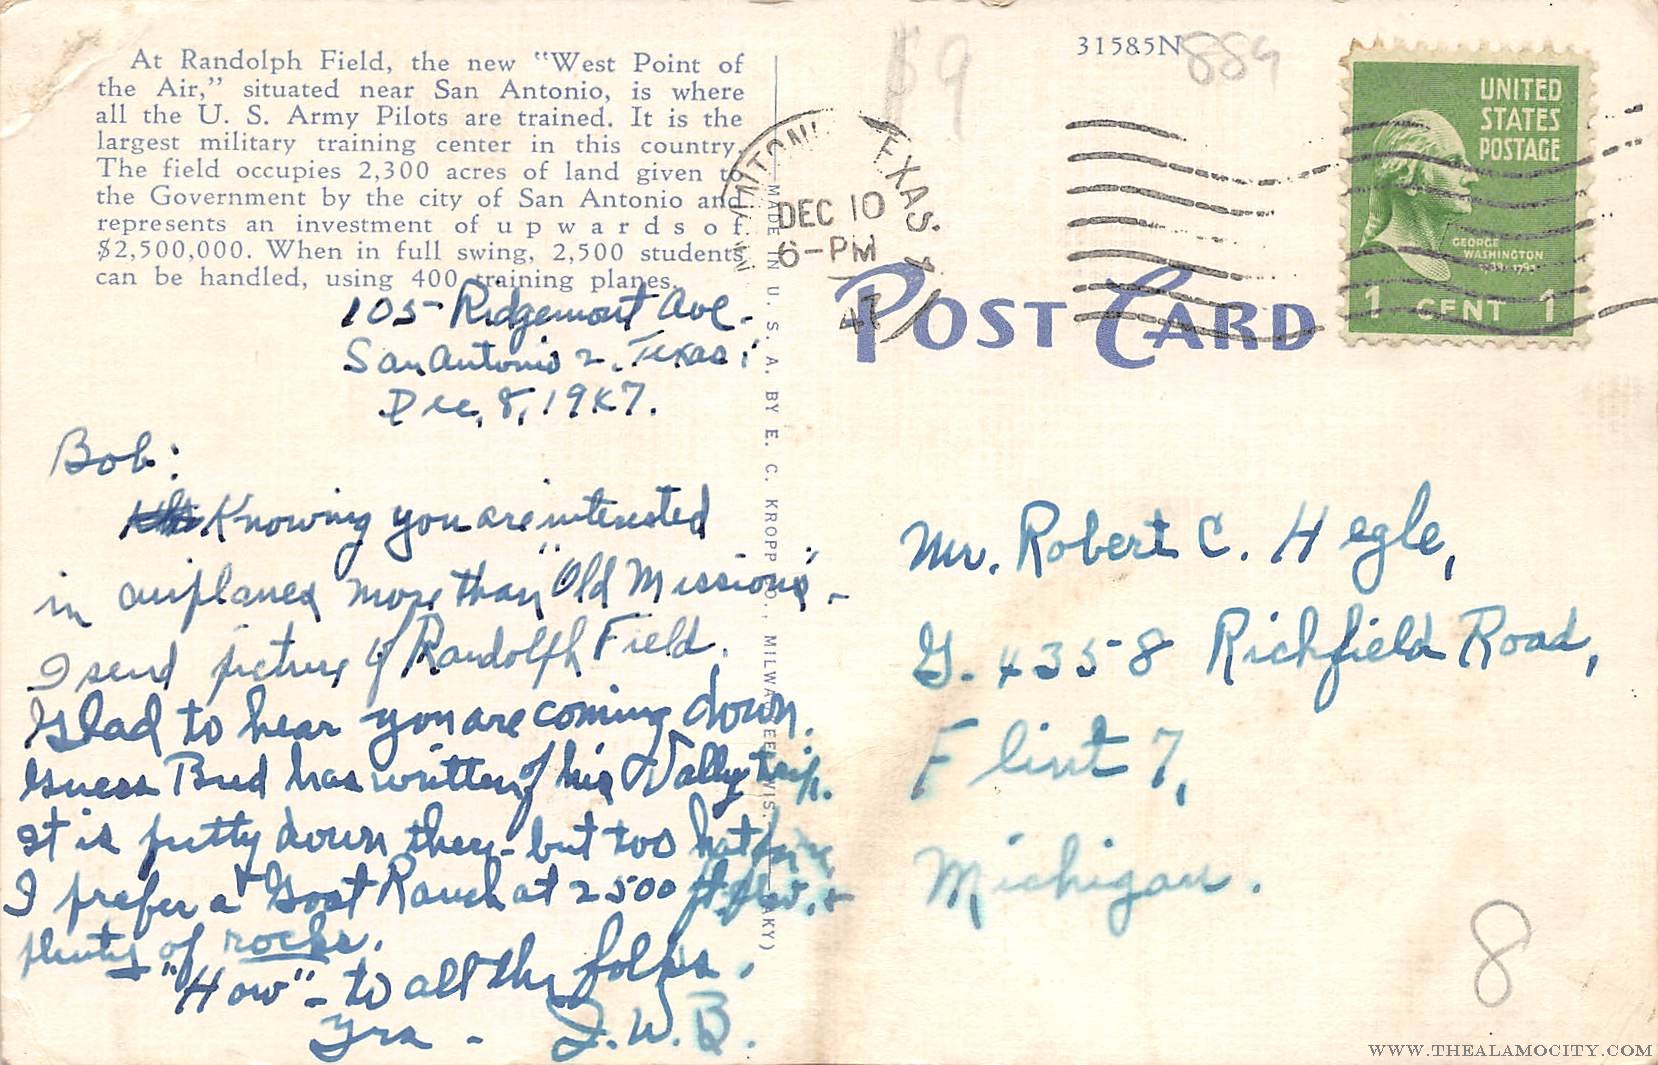 At Randolph Field, the new "West Point of
the Air," situated near San Antonio, is where
all the U. S. Army Pilots are trained. It is the
largest military training center in this country.
The field occupies 2,300 acres of land given to
the Government by the city of San Antonio and
represents an investment of upwards of
$2,500,000. When in full swing, 2,500 students
can be handled, using 400 training planes.
105 Ridgemont Ave.
San Antonio 2, Texas.
Dec, 8, 1947.
Bob:
Knowing you are interested
in airplanes more than "Old Missions" -
I send picture of Randolph Field.
Glad to hear you are coming down.
Guess Bud has written of his Valley trip.
It is pretty down there - but too hot for me
I prefer a Goat Ranch at 2500 ft. elev. &
plenty of rocks.
"How" - to all the folks.
Yrs - J. W. B.
MADE IN U. S. A. BY E. C. KROPP CO., MILWAUKEE, WIS.
31585N
$9
884
SAN ANTONIO, TEXAS.
DEC 10
6-PM
47
POST CARD
UNITED
STATES
POSTAGE
GEORGE
WASHINGTON
1789-1797
1 CENT 1
Mr. Robert C. Hegle,
G. 4358 Richfield Road,
Flint 7,
Michigan.
8
WWW.THEALAMOCITY.COM